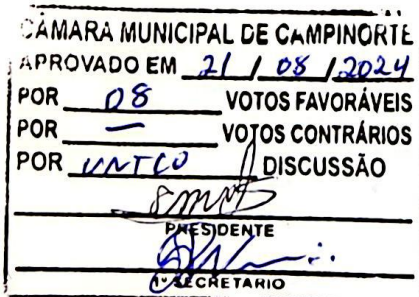 CÂMARA MUNICIPAL DE CAMPINORTE
APROVADO EM 21 / 08 / 2024
POR 08 VOTOS FAVORÁVEIS
POR — VOTOS CONTRÁRIOS
POR UNICO DISCUSSÃO
PRESIDENTE
1º SECRETARIO